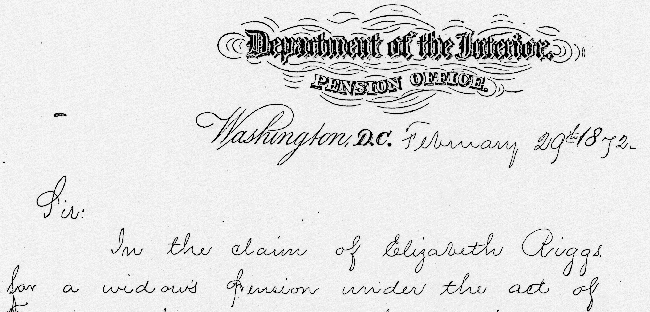 Department of the Interior.
PENSION OFFICE.
Washington, D.C. February 29th 1872.
Sir:
In the claim of Elizabeth Riggs
for a widows pension under the act of